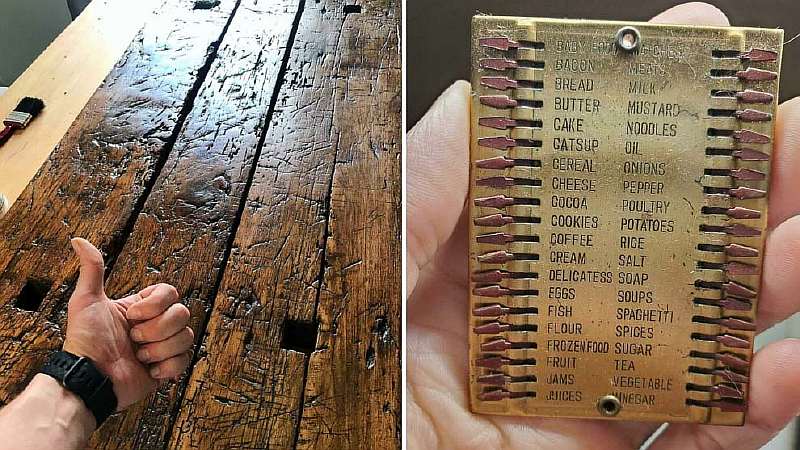 BABY
BACON
BREAD
BUTTER
CAKE
CATSUP
CEREAL
CHEESE
COCOA
COOKIES
COFFEE
CREAM
DELICATESS
EGGS
FISH
FLOUR
FROZEN FOOD
FRUIT
JAMS
JUICES
MEATS
MILK
MUSTARD
NOODLES
OIL
ONIONS
PEPPER
POULTRY
POTATOES
RICE
SALT
SOAP
SOUPS
SPAGHETTI
SPICES
SUGAR
TEA
VEGETABLE
VINEGAR